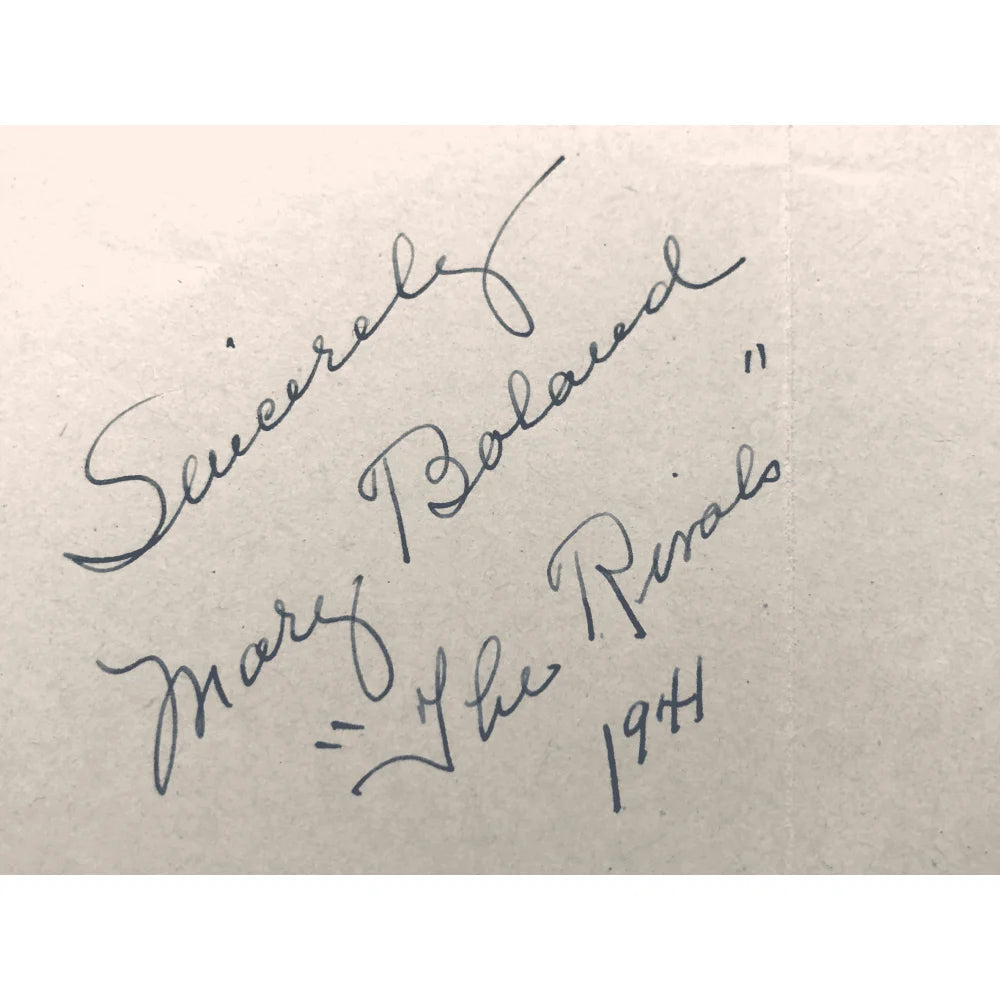 Sincerely
Mary Boland
"The Rivals"
1941